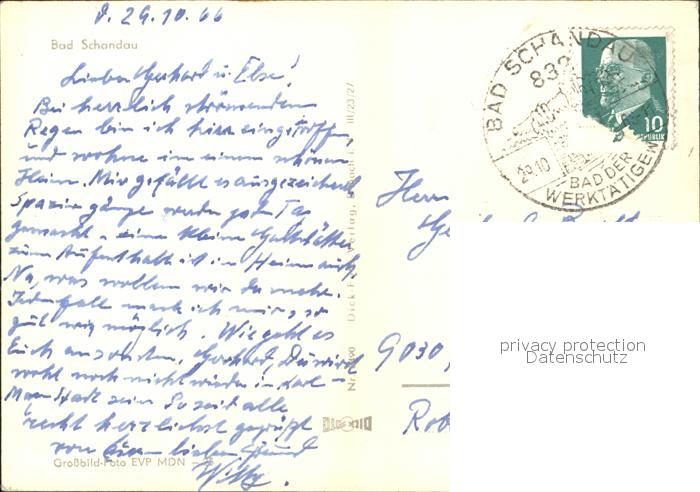 d. 29.10.66
Bad Schandau
Lieber Gerhart u. Else!
Bei herrlich strömenden
Regen bin ich hier eingetroffen,
und wohne in einem schönen
Heim. Mir gefällt es ausgezeichnet
Spaziergänge werden jed. Tag
gemacht. eine kleine Gaststätte
zum Aufenthalt ist im Heim auch,
Na, was wollen wir da mehr.
Jedenfalls mach ich mir's so
gut wie möglich. Wie geht es
Euch ansonsten, Gerhart, Du wirst
wohl noch nicht wieder in Karl-
Marx Stadt sein So seit alle
recht herzlichst gegrüßt
von Euren lieben Freund
Willy.
Großbild-Foto EVP MDN
III/23/27
Verlag,
Nr.
DICK FOTO
BAD SCHANDAU
832
29.10
BAD DER
WERKTÄTIGEN
10
Herrn
9030,
privacy protection
Datenschutz